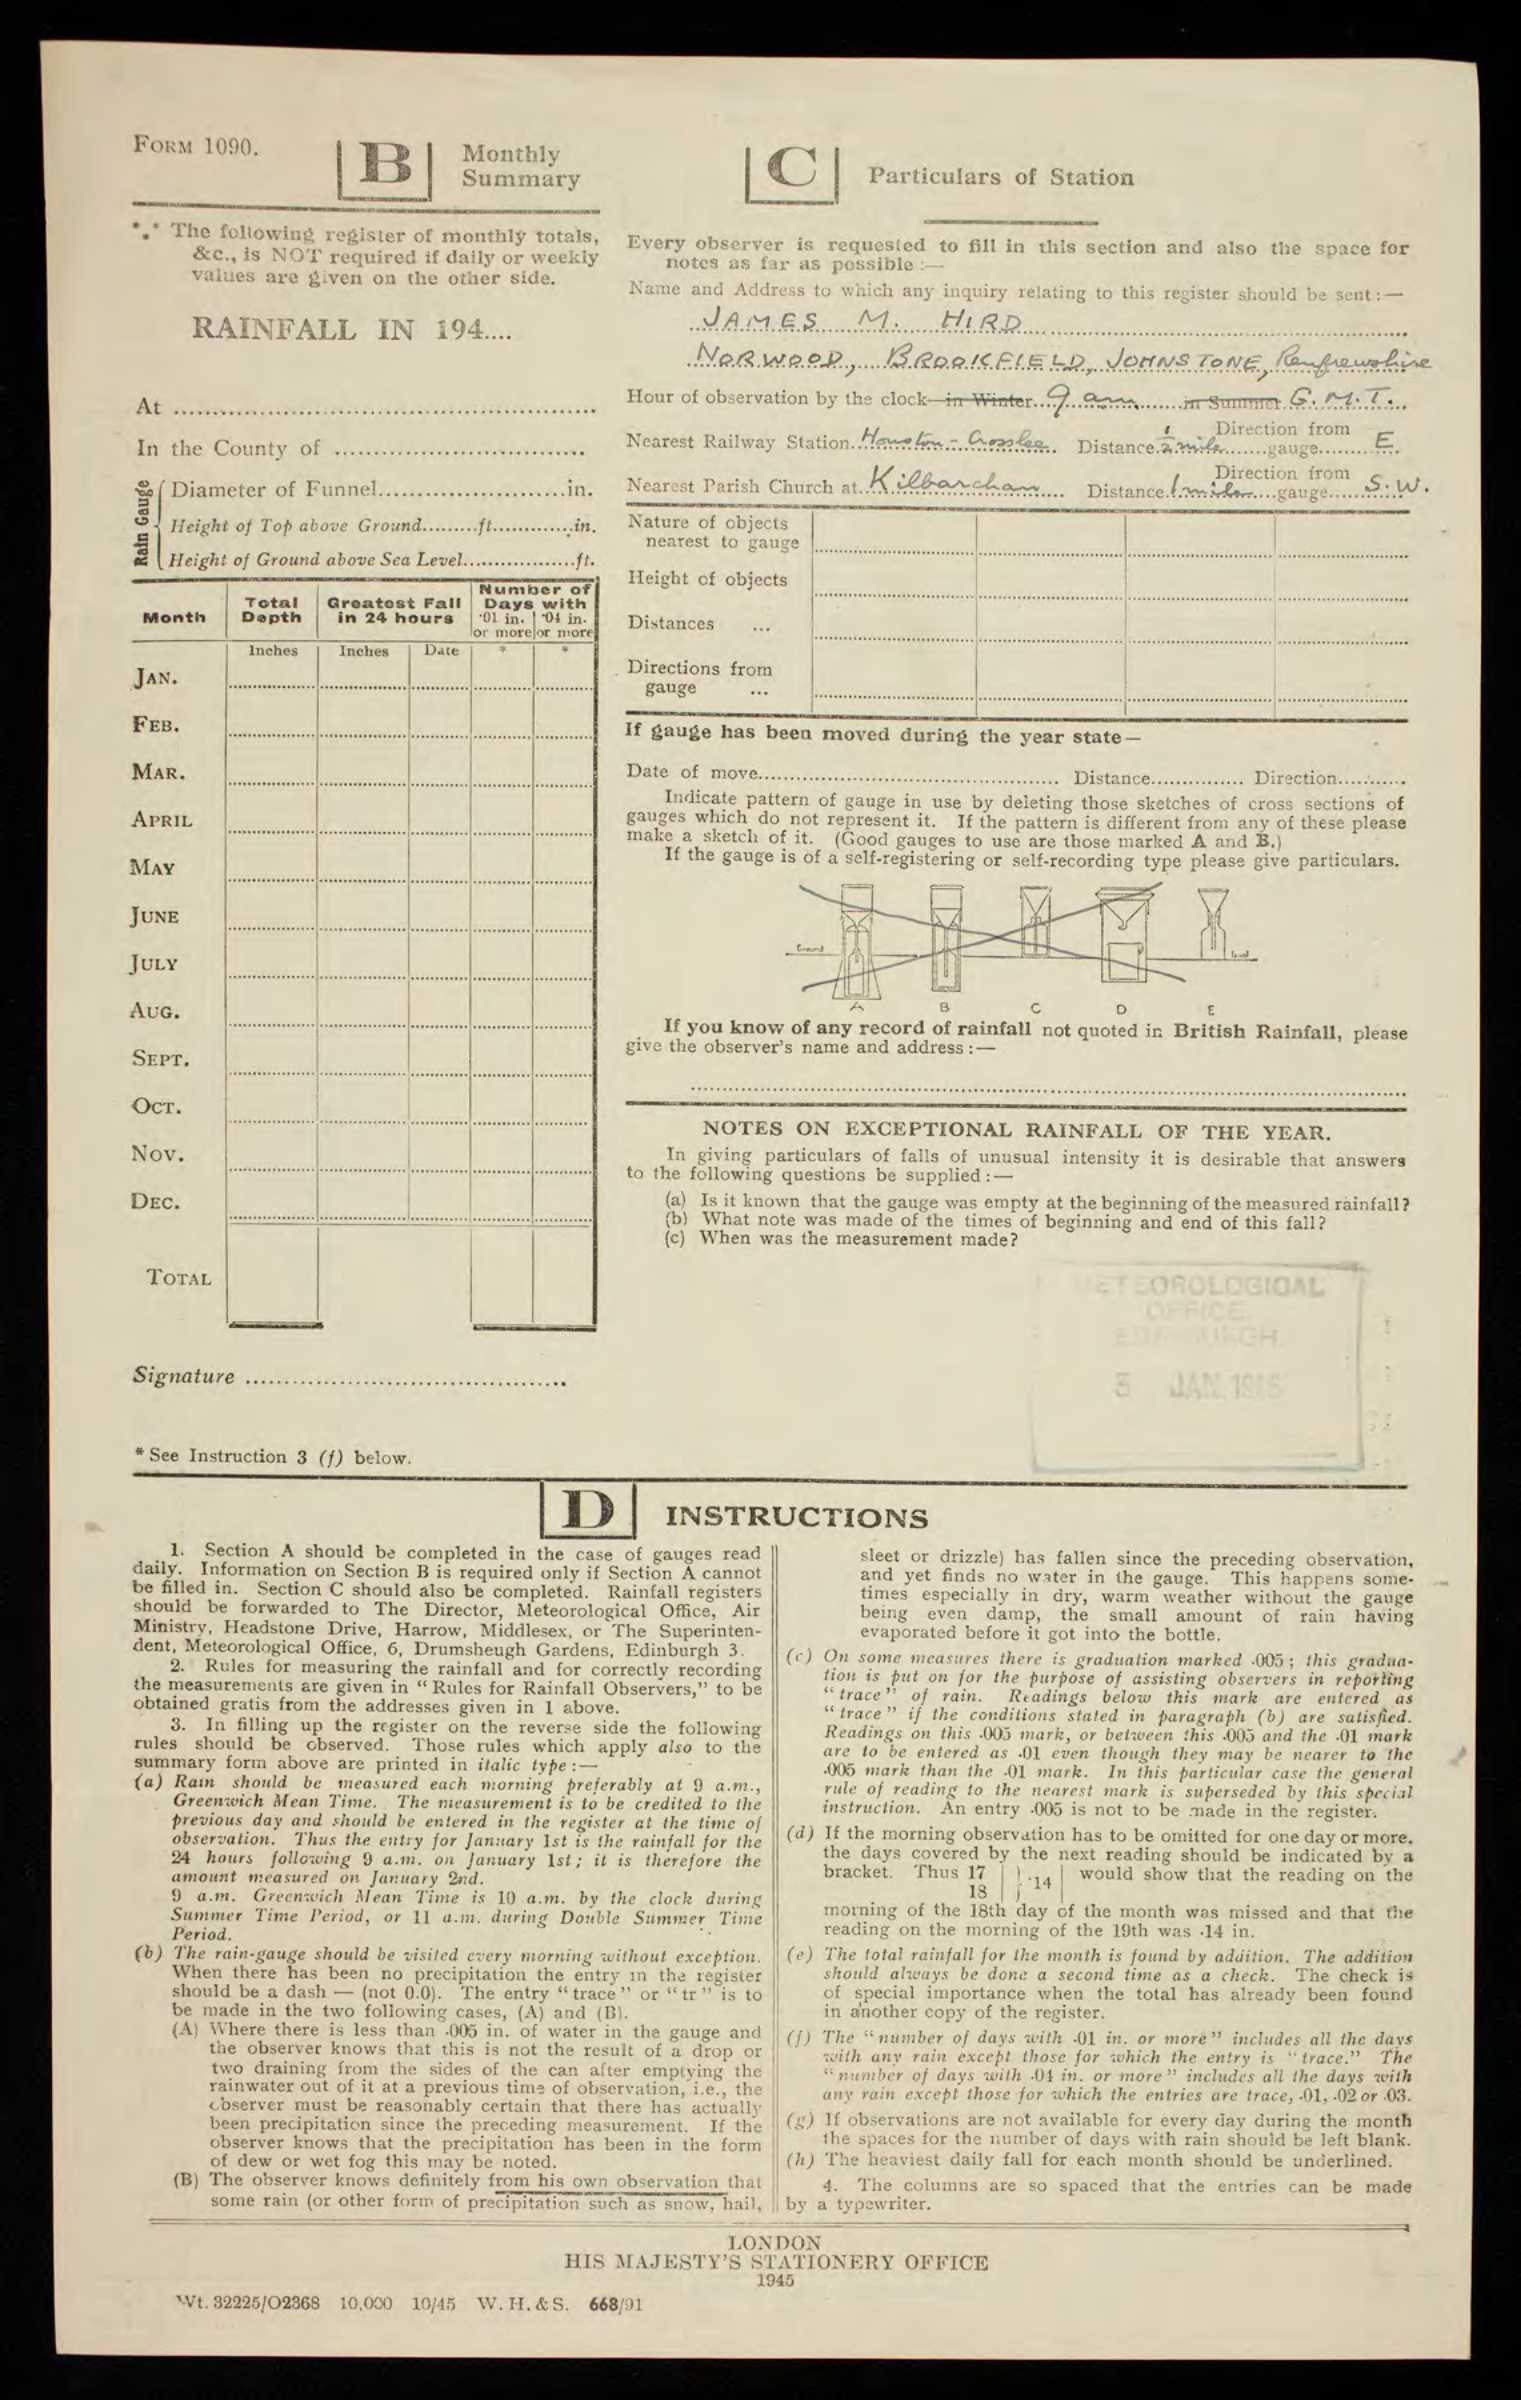 FORM 1090.
B Monthly
Summary
*.* The following register of monthly totals,
&c., is NOT required if daily or weekly
values are given on the other side.
RAINFALL IN 194....
At
In the County of
Rain Gauge
Diameter of Funnel in.
Height of Top above Ground ft. in.
Height of Ground above Sea Level ft.
Month
Total
Depth
Greatest Fall
in 24 hours
Number of
Days with
·01 in. ·04 in.
or more or more
Inches Inches Date * *
JAN.
FEB.
MAR.
APRIL
MAY
JUNE
JULY
AUG.
SEPT.
OCT.
NOV.
DEC.
TOTAL
Signature
* See Instruction 3 (f) below.
C Particulars of Station
Every observer is requested to fill in this section and also the space for
notes as far as possible :—
Name and Address to which any inquiry relating to this register should be sent :—
JAMES M. HIRD
NORWOOD, BROOKFIELD, JOHNSTONE, Renfrewshire
Hour of observation by the clock in Winter 9 am in Summer G.M.T.
Nearest Railway Station Houston - Crosslee Distance ½ mile Direction from gauge E
Nearest Parish Church at Kilbarchan Distance 1 mile Direction from gauge S.W.
Nature of objects
nearest to gauge
Height of objects
Distances ...
Directions from
gauge ...
If gauge has been moved during the year state—
Date of move Distance Direction
Indicate pattern of gauge in use by deleting those sketches of cross sections of
gauges which do not represent it. If the pattern is different from any of these please
make a sketch of it. (Good gauges to use are those marked A and B.)
If the gauge is of a self-registering or self-recording type please give particulars.
Ground
A B C D E
If you know of any record of rainfall not quoted in British Rainfall, please
give the observer's name and address :—
NOTES ON EXCEPTIONAL RAINFALL OF THE YEAR.
In giving particulars of falls of unusual intensity it is desirable that answers
to the following questions be supplied :—
(a) Is it known that the gauge was empty at the beginning of the measured rainfall?
(b) What note was made of the times of beginning and end of this fall?
(c) When was the measurement made?
METEOROLOGICAL
OFFICE,
EDINBURGH
3 JAN. 1946
D INSTRUCTIONS
1. Section A should be completed in the case of gauges read
daily. Information on Section B is required only if Section A cannot
be filled in. Section C should also be completed. Rainfall registers
should be forwarded to The Director, Meteorological Office, Air
Ministry, Headstone Drive, Harrow, Middlesex, or The Superinten-
dent, Meteorological Office, 6, Drumsheugh Gardens, Edinburgh 3.
2. Rules for measuring the rainfall and for correctly recording
the measurements are given in "Rules for Rainfall Observers," to be
obtained gratis from the addresses given in 1 above.
3. In filling up the register on the reverse side the following
rules should be observed. Those rules which apply also to the
summary form above are printed in italic type :—
(a) Rain should be measured each morning preferably at 9 a.m.,
Greenwich Mean Time. The measurement is to be credited to the
previous day and should be entered in the register at the time of
observation. Thus the entry for January 1st is the rainfall for the
24 hours following 9 a.m. on January 1st; it is therefore the
amount measured on January 2nd.
9 a.m. Greenwich Mean Time is 10 a.m. by the clock during
Summer Time Period, or 11 a.m. during Double Summer Time
Period.
(b) The rain-gauge should be visited every morning without exception.
When there has been no precipitation the entry in the register
should be a dash — (not 0.0). The entry "trace" or "tr" is to
be made in the two following cases, (A) and (B).
(A) Where there is less than ·005 in. of water in the gauge and
the observer knows that this is not the result of a drop or
two draining from the sides of the can after emptying the
rainwater out of it at a previous time of observation, i.e., the
observer must be reasonably certain that there has actually
been precipitation since the preceding measurement. If the
observer knows that the precipitation has been in the form
of dew or wet fog this may be noted.
(B) The observer knows definitely from his own observation that
some rain (or other form of precipitation such as snow, hail,
sleet or drizzle) has fallen since the preceding observation,
and yet finds no water in the gauge. This happens some-
times especially in dry, warm weather without the gauge
being even damp, the small amount of rain having
evaporated before it got into the bottle.
(c) On some measures there is graduation marked ·005; this gradua-
tion is put on for the purpose of assisting observers in reporting
"trace" of rain. Readings below this mark are entered as
"trace" if the conditions stated in paragraph (b) are satisfied.
Readings on this ·005 mark, or between this ·005 and the ·01 mark
are to be entered as ·01 even though they may be nearer to the
·005 mark than the ·01 mark. In this particular case the general
rule of reading to the nearest mark is superseded by this special
instruction. An entry ·005 is not to be made in the register.
(d) If the morning observation has to be omitted for one day or more,
the days covered by the next reading should be indicated by a
bracket. Thus 17 18 } ·14 would show that the reading on the
morning of the 18th day of the month was missed and that the
reading on the morning of the 19th was ·14 in.
(e) The total rainfall for the month is found by addition. The addition
should always be done a second time as a check. The check is
of special importance when the total has already been found
in another copy of the register.
(f) The "number of days with ·01 in. or more" includes all the days
with any rain except those for which the entry is "trace." The
"number of days with ·04 in. or more" includes all the days with
any rain except those for which the entries are trace, ·01, ·02 or ·03.
(g) If observations are not available for every day during the month
the spaces for the number of days with rain should be left blank.
(h) The heaviest daily fall for each month should be underlined.
4. The columns are so spaced that the entries can be made
by a typewriter.
LONDON
HIS MAJESTY'S STATIONERY OFFICE
1945
Wt. 32225/O2368 10,000 10/45 W. H. & S. 668/91